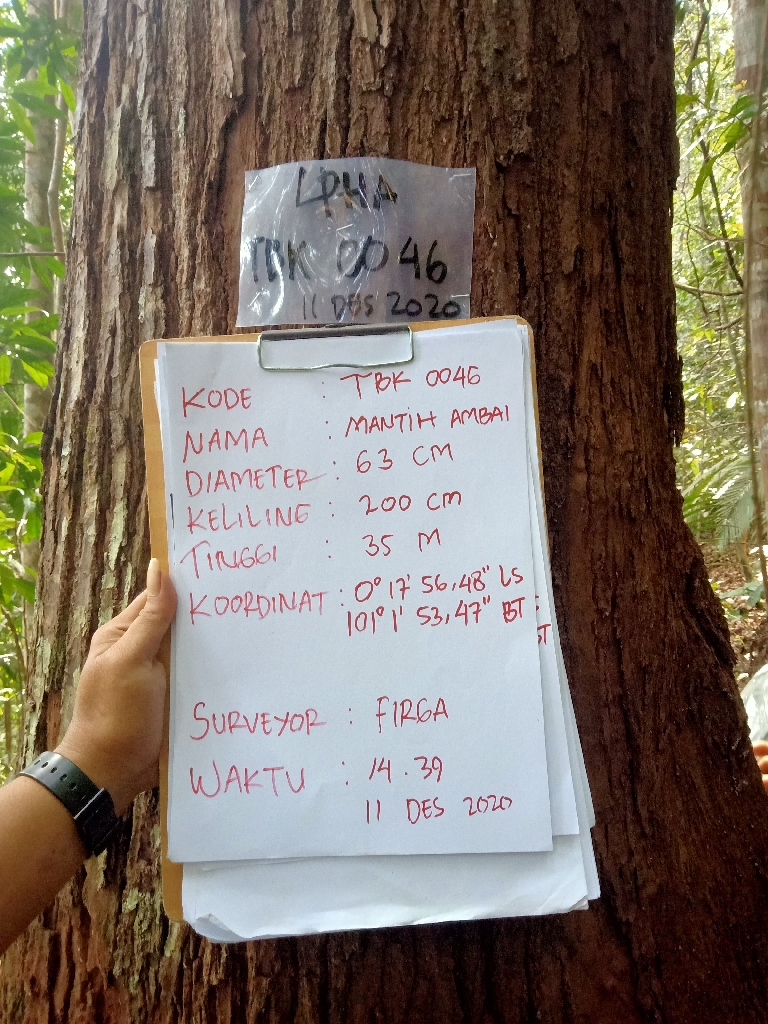 LPHA
TBK 0046
11 DES 2020
KODE : TBK 0046
NAMA : MANTIH AMBAI
DIAMETER : 63 CM
KELILINE : 200 CM
TINGGI : 35 M
KOORDINAT : 0° 17' 56,48" LS
101° 1' 53,47" BT
ST
SURVEYOR : FIRGA
WAKTU : 14.39
11 DES 2020